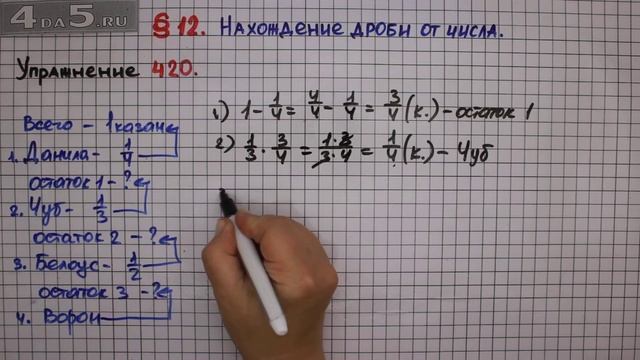 4DA5.RU
§ 12. Нахождение дроби от числа.
Упражнение 420.
Всего - 1 казан
1. Данила - 1/4
остаток 1 - ?
2. Чуб - 1/3
остаток 2 - ?
3. Белоус - 1/2
остаток 3 - ?
4. Ворон
1) 1 - 1/4 = 4/4 - 1/4 = 3/4 (к.) - остаток 1
2) 1/3 · 3/4 = 1·3/3·4 = 1/4 (к.) - Чуб